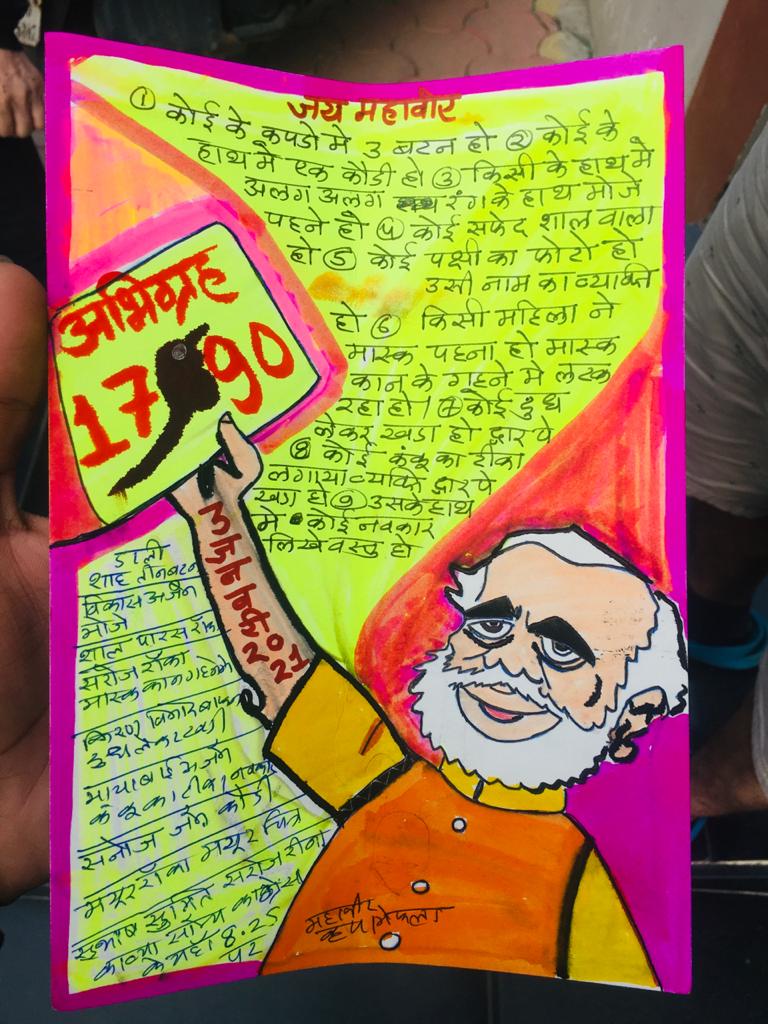 जय महावीर
① कोई के कपडो मे 3 बटन हो ② कोई के
हाथ मे एक कौडी हो ③ किसी के हाथ मे
अलग अलग रंग के हाथ मोजे
पहने हो ④ कोई सफेद शाल वाला
हो ⑤ कोई पक्षी का फोटो हो
उसी नाम का व्यक्ति
हो ⑥ किसी महिला ने
मास्क पहना हो मास्क
कान के गहने मे लटक
रहा हो। ⑦ कोई दुध
लेकर खडा हो द्वार पे
⑧ कोई कंकू का टीका
लगाया व्यक्ति द्वार पे
खडा हो ⑨ उसके हाथ
मे कोई नवकार
लिखे वस्तु हो
अभिग्रह
1790
2021
डाली
शाह तीन बटन
विकास जैन
मोजे
शाल पारस राँका
सरोज राँका
मास्क कान गहने मे
किरण
मायाबाई
कंकू का टीका नवकार
मनोज जैन कौडी
मयूर राँका मयूर चित्र
सुभाष सुमित सरोज रीना
काव्या
के यहाँ 8.25
पर
महावीर